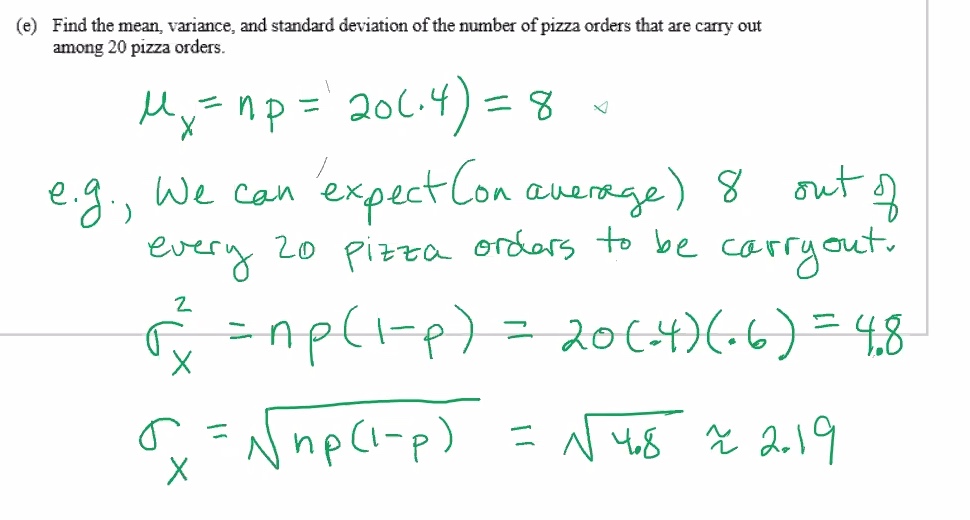 (e) Find the mean, variance, and standard deviation of the number of pizza orders that are carry out
among 20 pizza orders.
μ_X = np = 20(.4) = 8
e.g., We can expect (on average) 8 out of
every 20 pizza orders to be carryout.
σ²_X = np(1-p) = 20(.4)(.6) = 4.8
σ_X = √np(1-p) = √4.8 ≈ 2.19